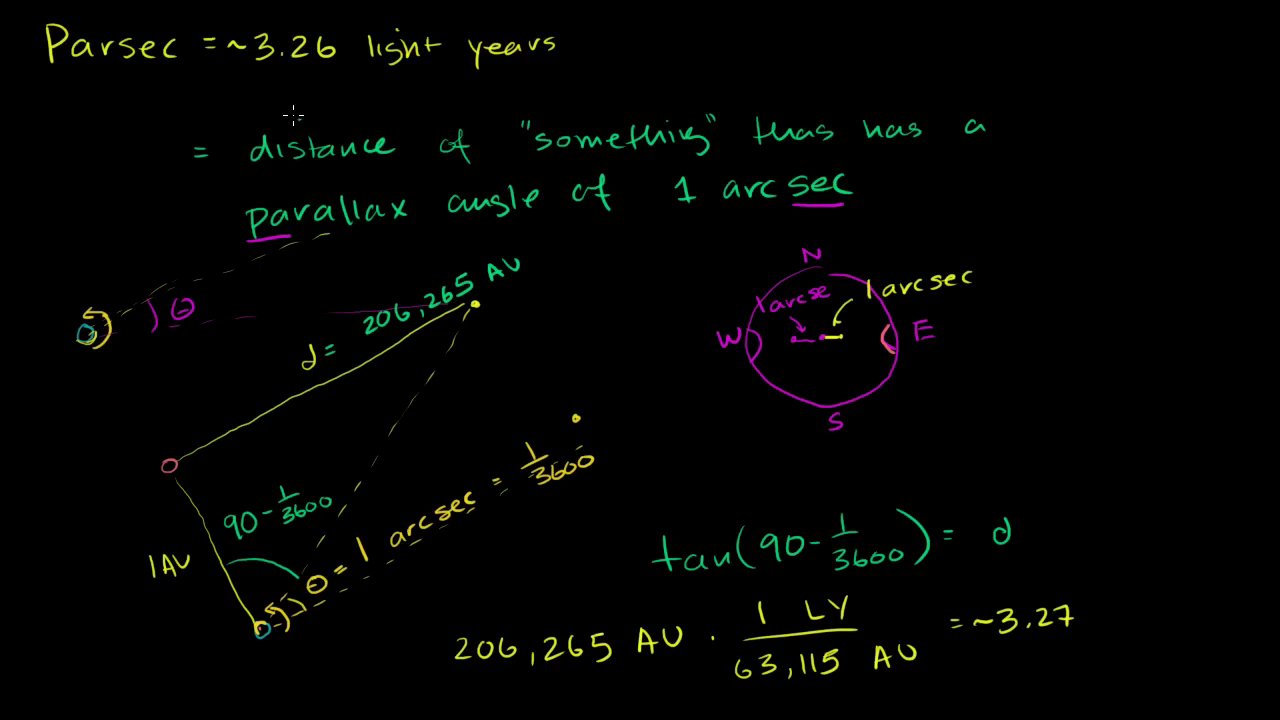 Parsec = ~3.26 light years
= distance of "something" thas has a
parallax angle of 1 arcsec
θ
d = 206,265 AU
N
1 arcse
1 arcsec
W
E
S
90 - 1/3600
1AU
θ = 1 arcsec = 1/3600
tan(90 - 1/3600) = d
206,265 AU · 1 LY / 63,115 AU = ~3.27